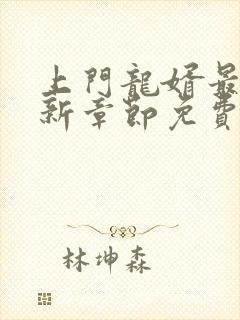 上門龍婿最
新章節免費
林坤森